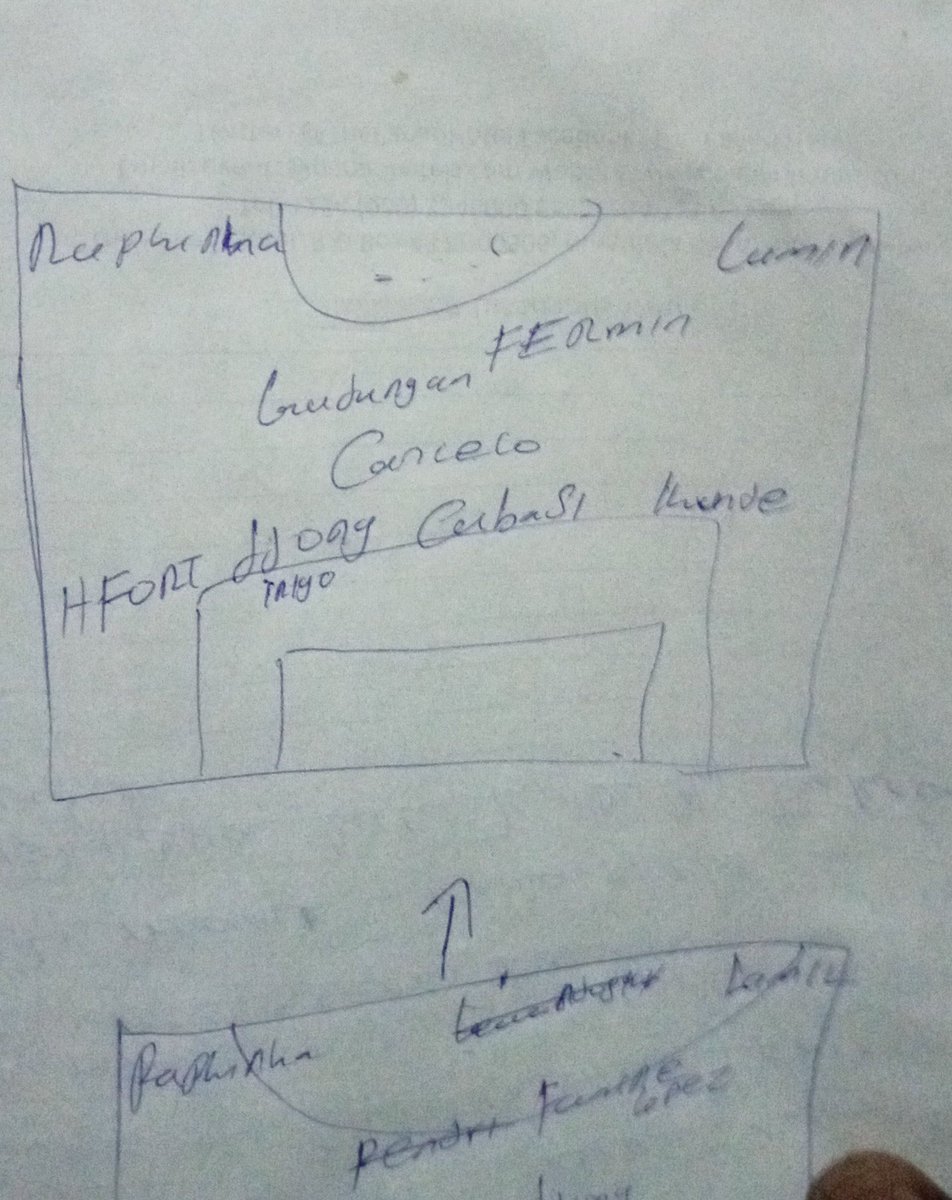 Raphinha Lamin
FERmin
Gundungan
Cancelo
HFORT dJong Cubasi Kunde
Inigo
Raphinha Lamin
Pendri Farmine
lopez